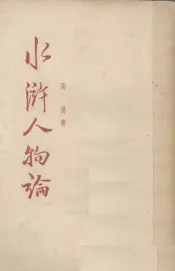 水滸人物論
高著